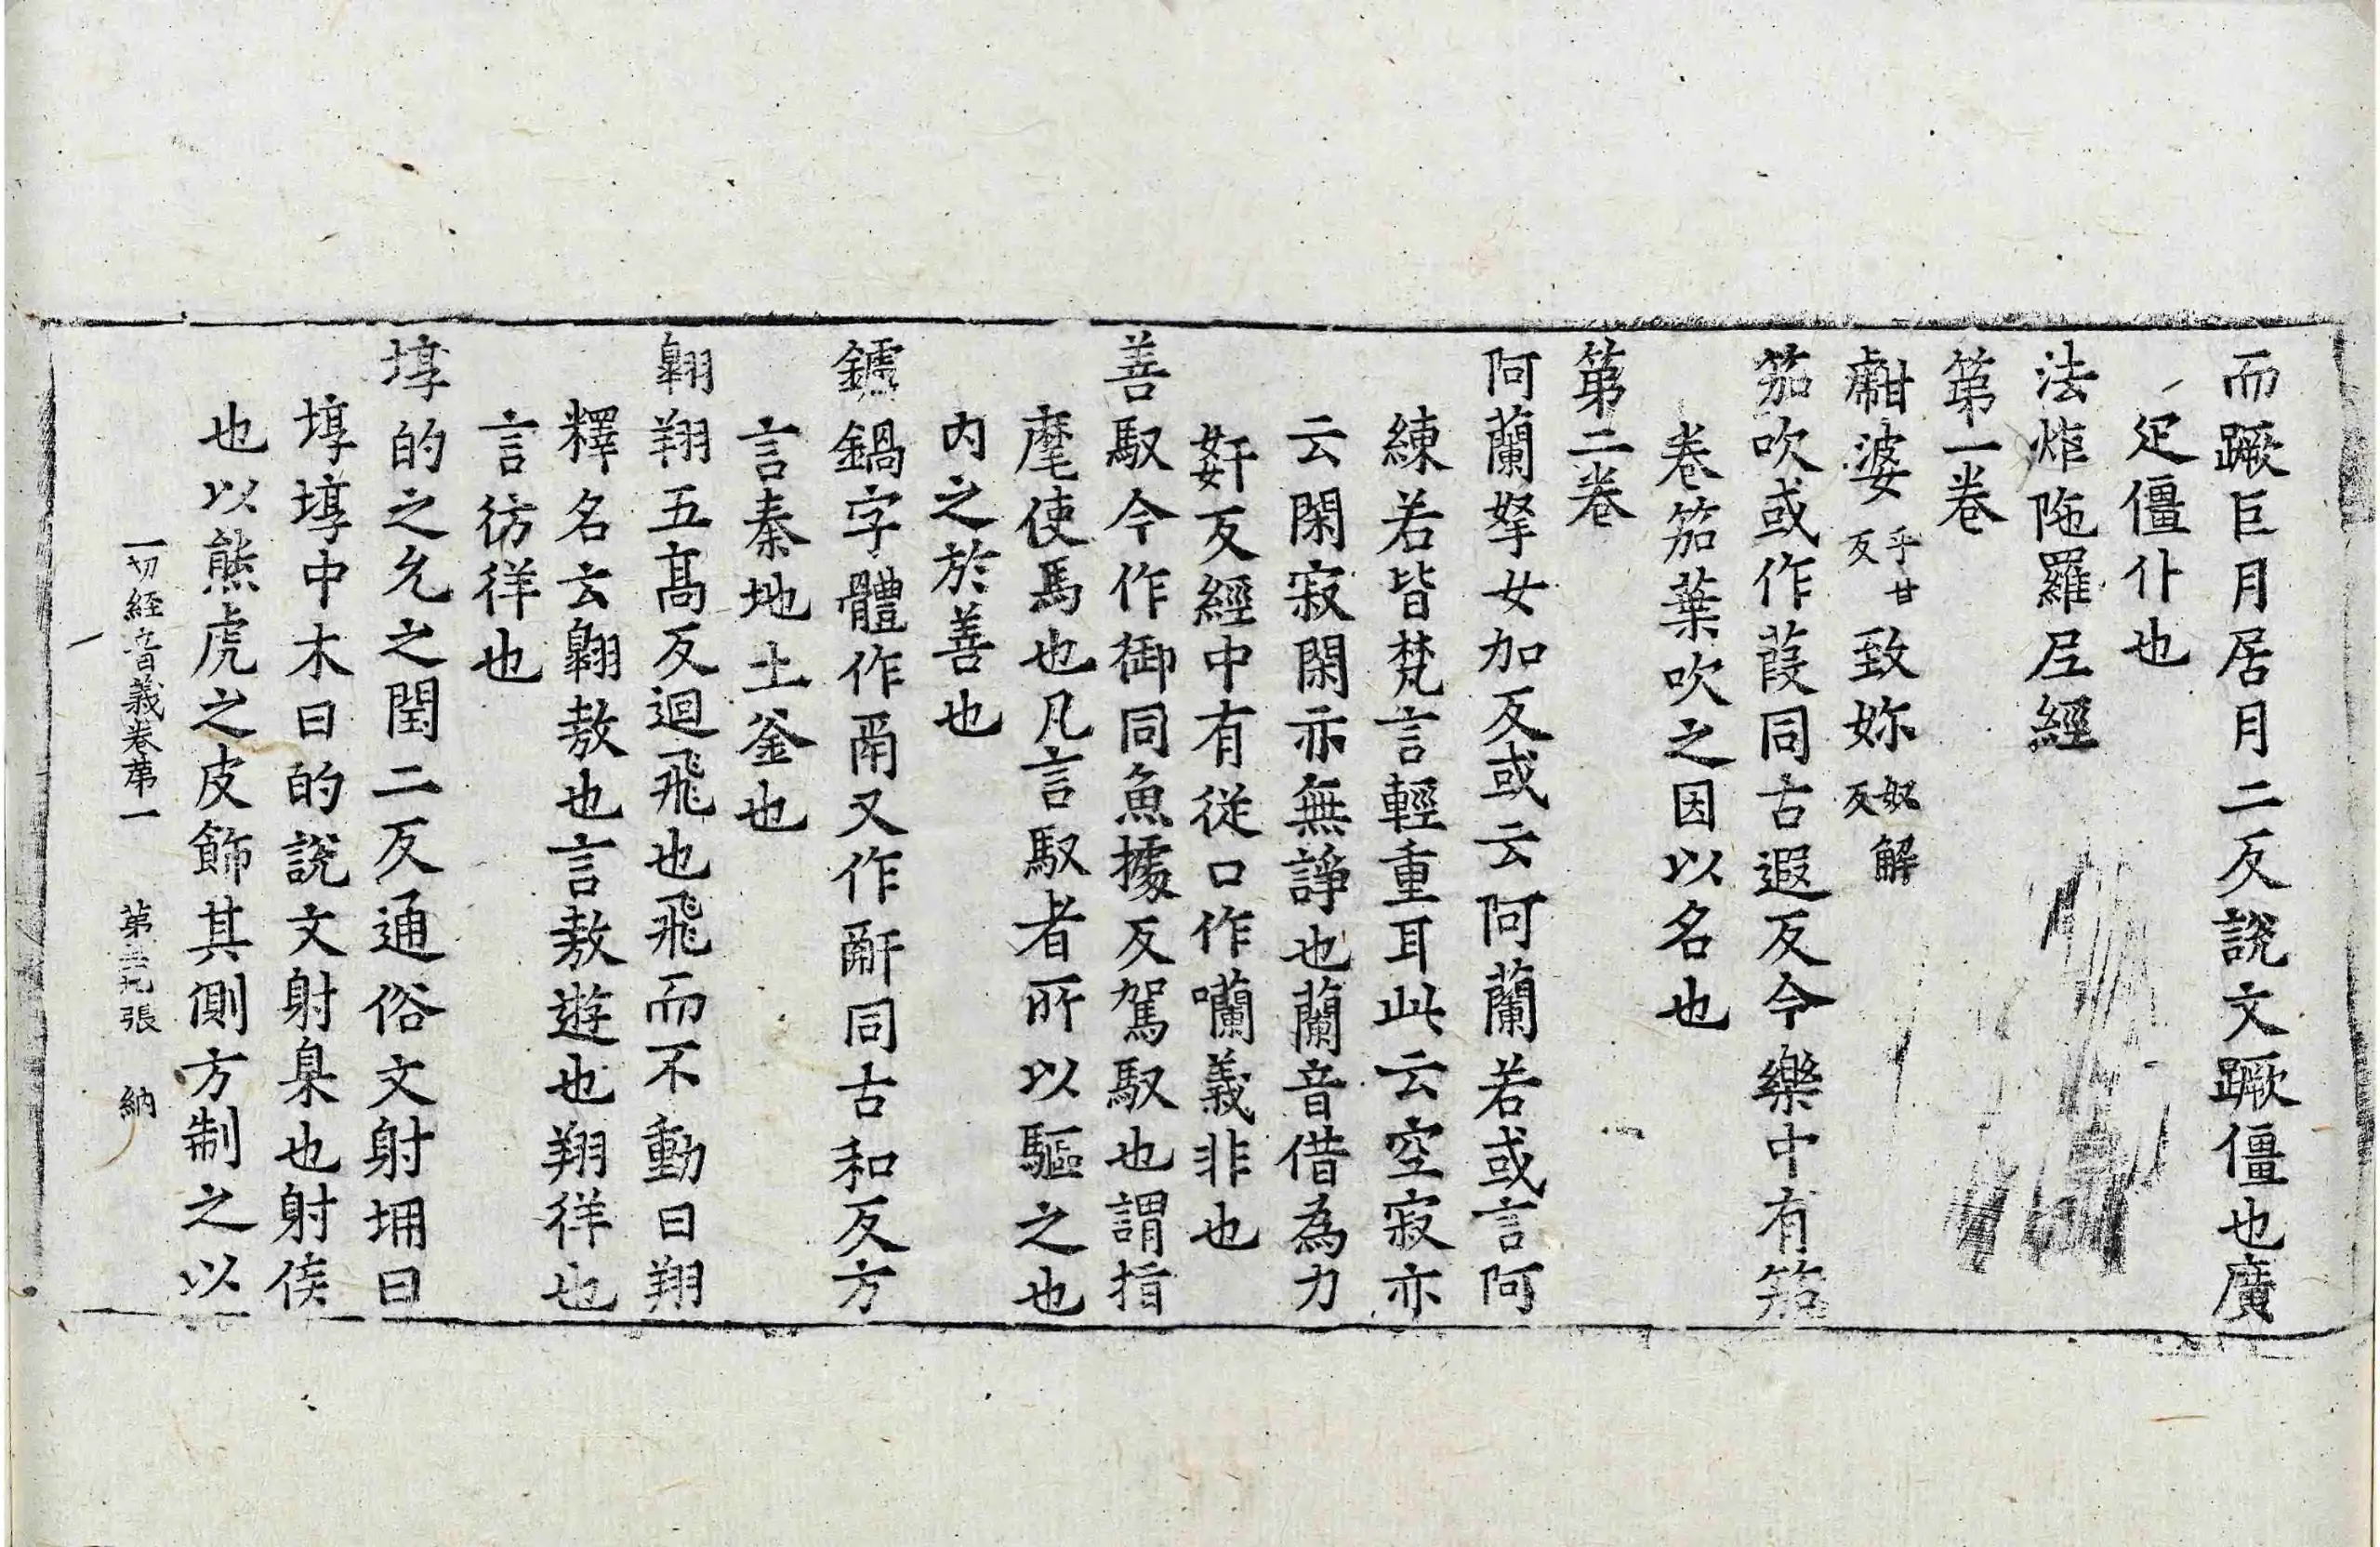 而蹶巨月居月二反說文蹶僵也廣
疋僵仆也
法炬陁羅尼經
第一卷
㽍婆乎甘反致妳奴解反
笳吹或作葭同古遐反今樂中有笳
卷笳葉吹之因以名也
第二卷
阿蘭拏女加反或云阿蘭若或言阿
練若皆梵言輕重耳此云空寂亦
云閑寂閑亦無諍也蘭音借為力
姧反經中有從口作囒義非也
善馭今作御同魚據反駕馭也謂指
麾使馬也凡言馭者所以驅之也
内之於善也
鑪鍋字體作鬲又作𩰫同古和反方
言秦地土釜也
翱翔五高反迴飛也飛而不動曰翔
釋名云翱敖也言敖遊也翔徉也
言彷徉也
埻的之允之閏二反通俗文射堋曰
埻埻中木曰的說文射臬也射侯
也以熊虎之皮飾其側方制之以
一切經音義卷第一 第 張 納